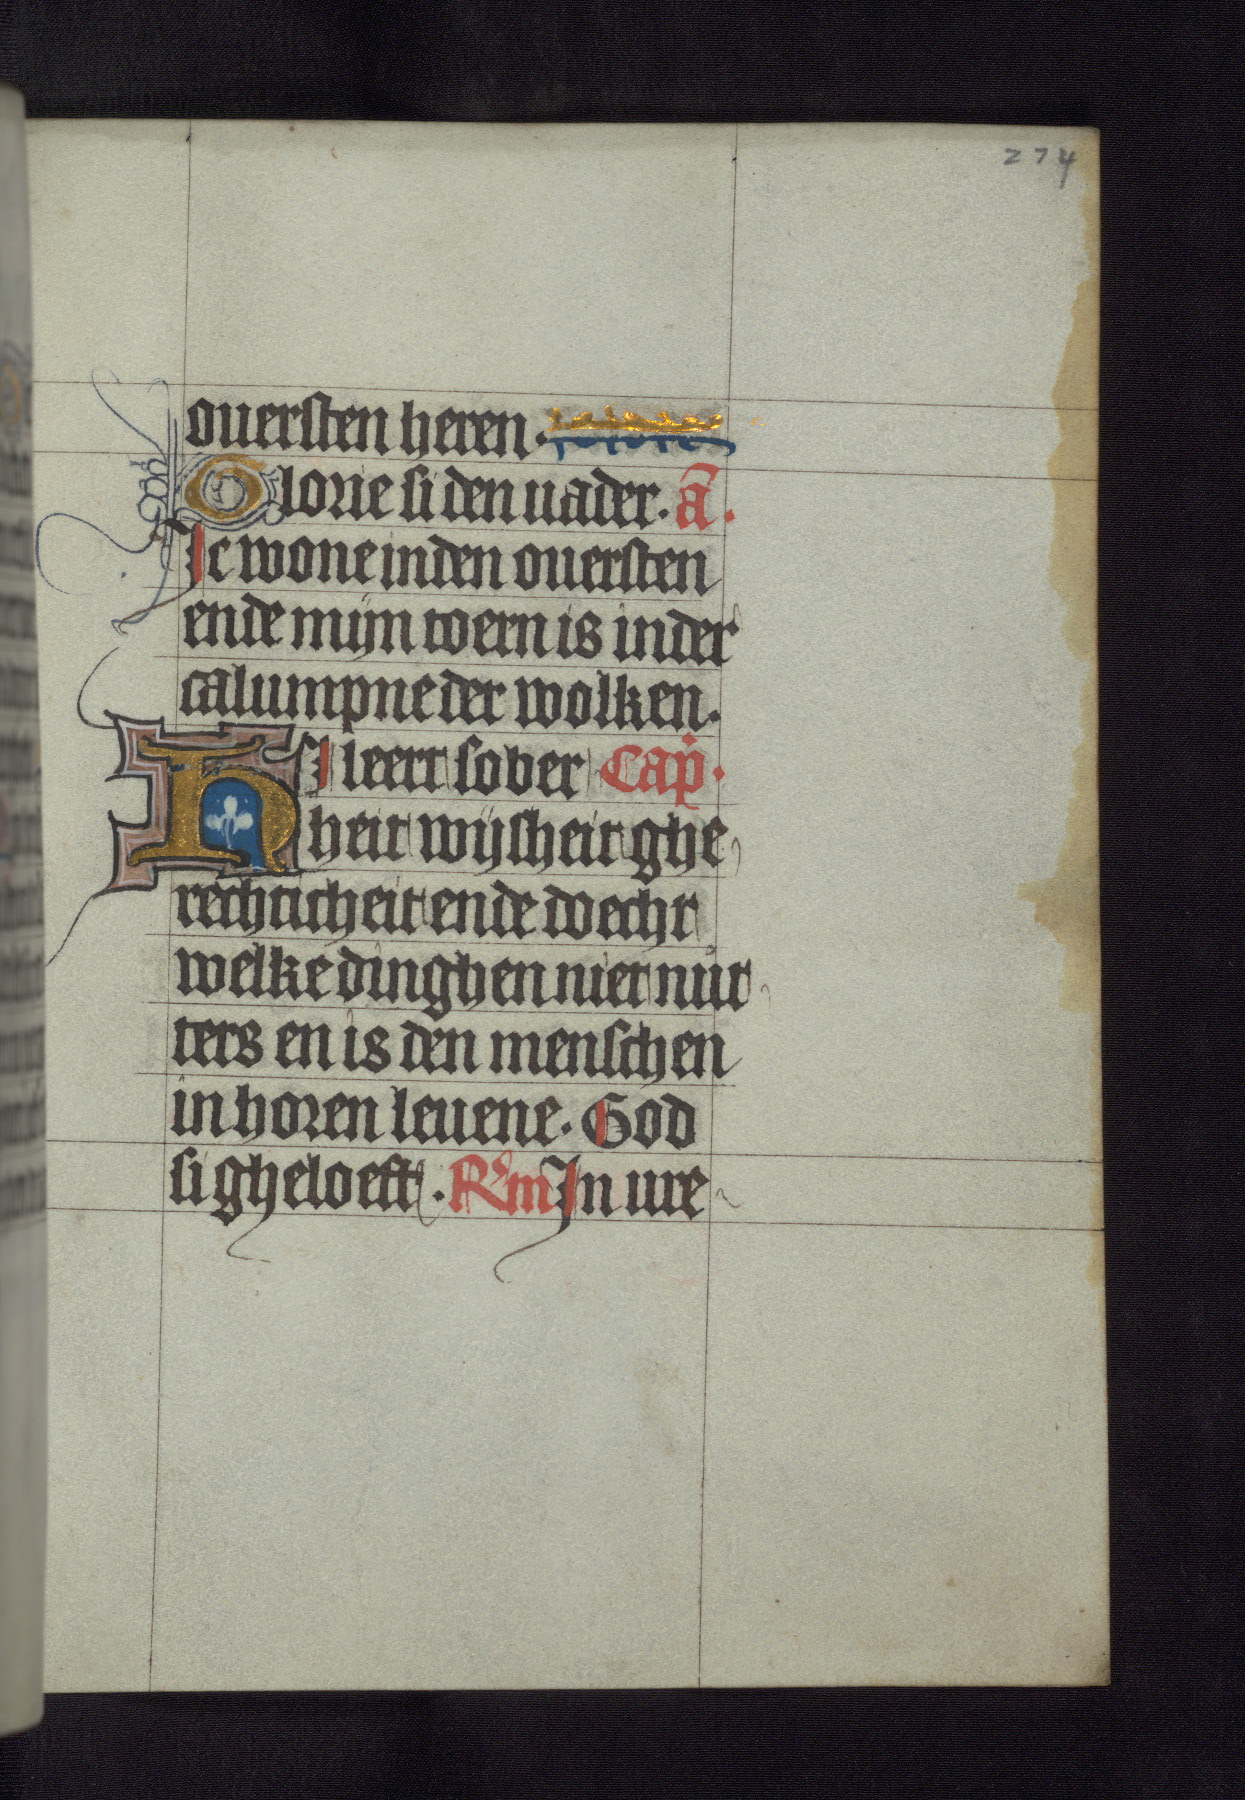 274
ouersten heren.
Glorie si den uader. a̅.
Ic wone in den ouersten
ende mijn toern is in der
calumpne der wolken.
HI leert sober Cap.
heit wijsheit ghe
rechticheit ende doecht
welke dinghen niet nut
ters en is den menschen
in horen leuene. God
si gheloeft. Rm In ure